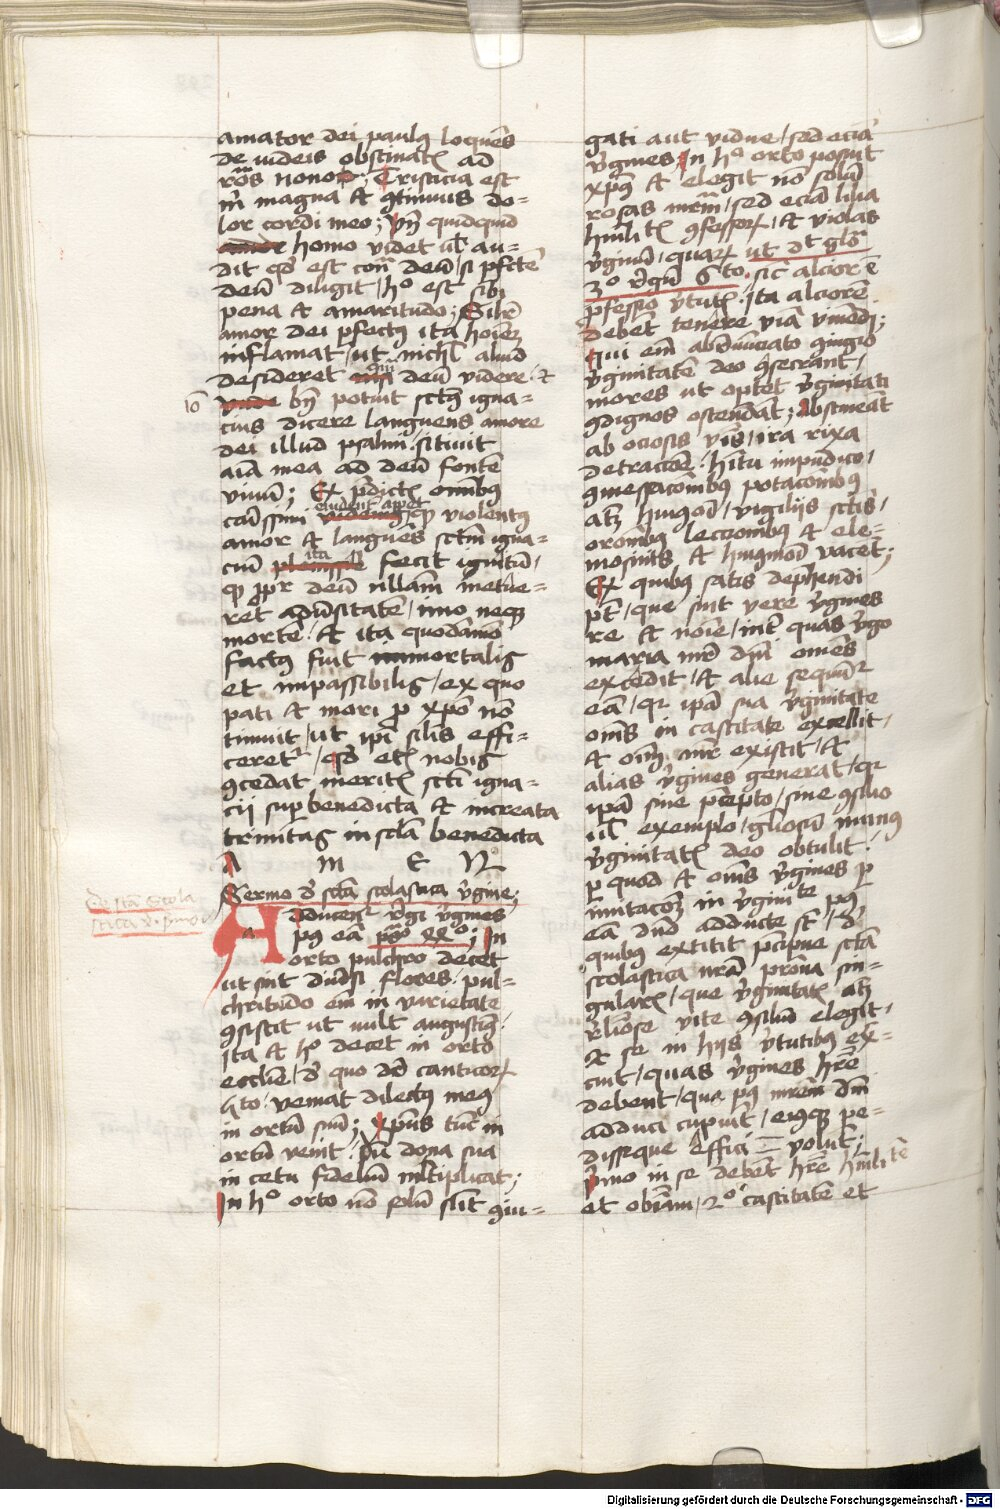 amator dei paulus loquens
de iudeis obstinatis ad
ros nono; Tristicia est
m magna et continuus do-
lor cordi meo; Vn quidquid
homo videt ul au-
dit quod est contra deum, si perfecte
deum diligit, hoc est sibi
pena et amaritudo; Similiter
amor dei perfectus ita hominem
inflamat, ut nichil aliud
desideret quam deum videre et
io bn potuit sctus igna-
cius dicere languens amore
dei illud psalmi sitiuit
aia mea ad deum fontem
viuum; Ex predictis omnibus
carissimi euident apparet quod violentus
amor et languens sctm igna-
cium ita fecit ignitum,
quod propter deum nullam metue-
ret aduersitatem, imo neque
mortem et ita quodammodo
factus fuit immortalis
et impassibilis, ex quo
pati et mori pro xpo non
timuit, ut ipi similis effi-
ceretur, quod etiam nobis
concedat meritis scti igna-
cij superbenedicta et increata
trinitas in secula benedicta
A m E N
Sermo de scta scolastica virgine;
De scta scola
stica v. sermo
Adducentur regi virgines
post eam psalmo xl°; In
orto pulchro decet
ut sint diuersi flores, pul-
chritudo enim in varietate
consistit ut vult augustinus,
Ita et hoc decet in orto
ecclesie, de quo dicitur canticorum
quinto. veniat dilectus meus
in ortum suum; xpus tunc in
ortum venit, dum dona sua
in cetu fidelium multiplicat;
In hoc orto non solum sunt coniu-
gati aut vidue, sed eciam
virgines In hoc orto posuit
xpus et elegit non solum
rosas martirum, sed eciam lilia
confessorum, et violas
virginum, quarum ut dicit
sicut alcior est
professio virtutis, ita alciorem
debent tenere viam viuendi;
Qui enim abdicato coniugio
virginitatem deo consecrant,
mores ut optet virginitati
condignos ostendant; Abstineant
ab ociosis verbis, ira rixa
detraccione, habitu impudico,
comessacionibus potacionibus
atque huiusmodi, vigilijs sanctis,
oracionibus leccionibus et ele-
mosinis et huiusmodi vacent;
Ex quibus satis deprehendi
potest, que sint vere virgines
re et nomine, inter quas virgo
maria mater domini omnes
excedit, et alie sequuntur
eam, quia ipsa sua virginitate
omnes in castitate excellit,
et omnium mater existit, et
alias virgines generat, quia
ipsa sine precepto, sine consilio
uel exemplo, gloriosum munus
virginitatis deo obtulit,
per quod et omnes virgines per
imitacionem in virginitate post
eam deo adducte sunt, de
quibus extitit precipue sancta
scolastica nostra patrona sin-
gularis, que virginitatis atque
religiose vite consilium elegit,
et se in hijs virtutibus ex-
cuit, quas virgines habere
debent, que post matrem domini
adduci cupiunt, eiusque pe-
disseque effici = volunt;
Primo in se debent habere humilitatem
et obedienciam, 2° castitatem et
Digitalisierung gefördert durch die Deutsche Forschungsgemeinschaft - DFG